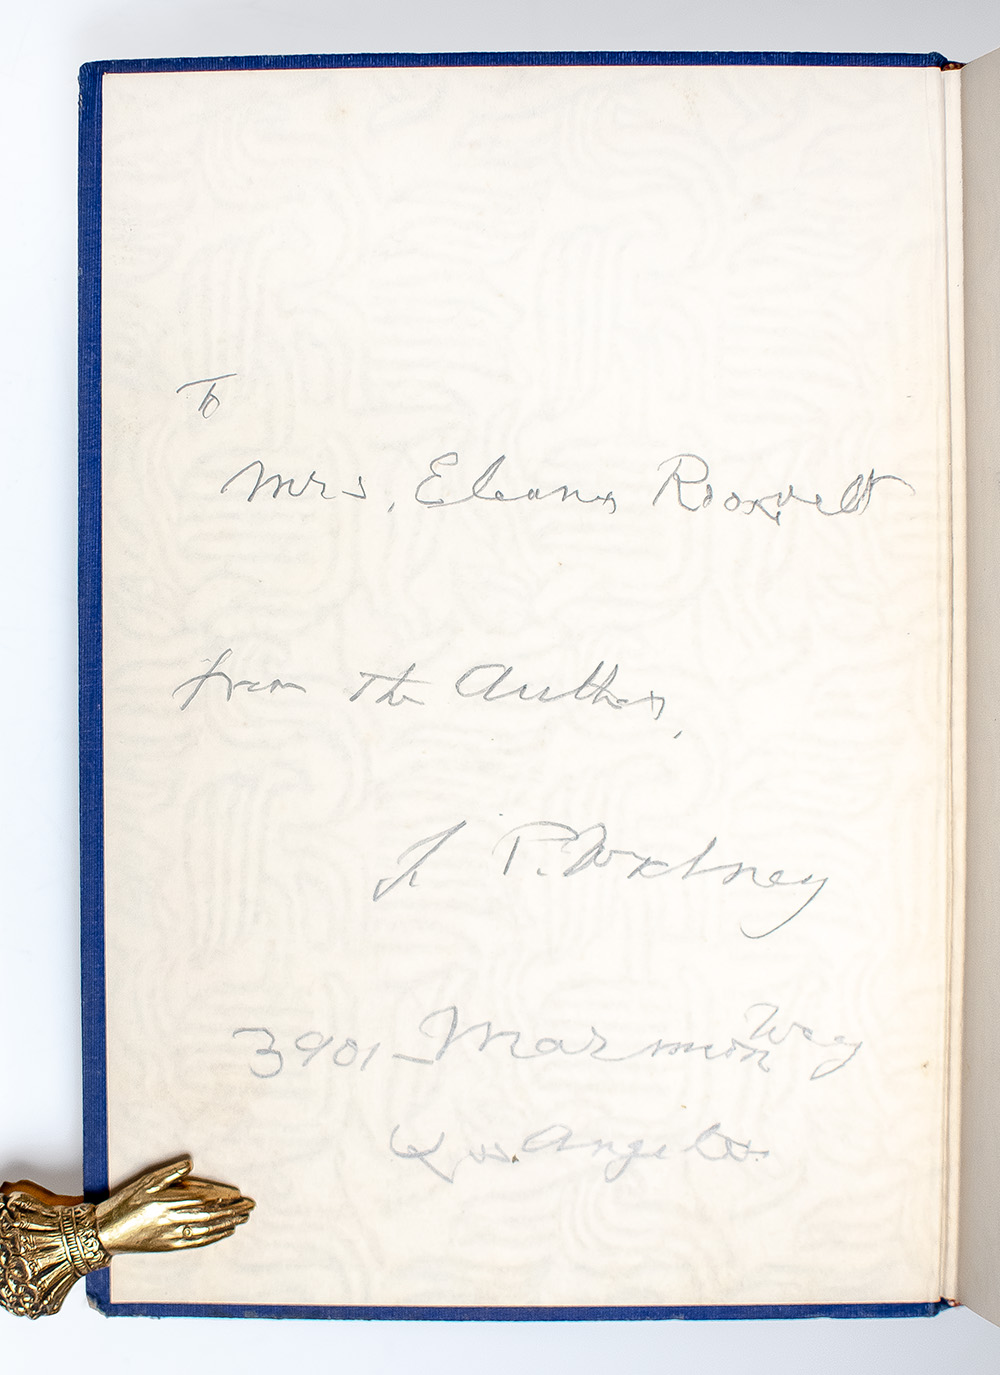 To
Mrs, Eleanor Roosevelt
from the Author,
J. P. Watney
3901 Marmion Way
Los Angeles